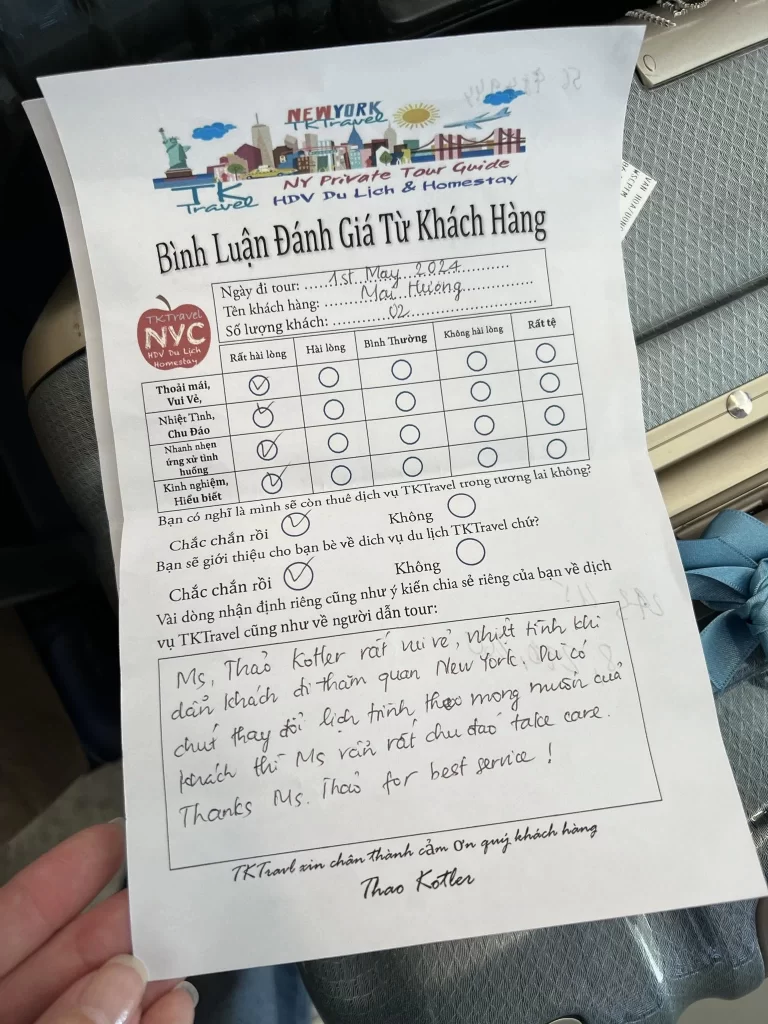 NEWYORK
TKTravel
TK
Travel
NY Private Tour Guide
HDV Du Lịch & Homestay
Bình Luận Đánh Giá Từ Khách Hàng
TKTravel
NYC
HDV Du Lịch
Homestay
Ngày đi tour: 1st May 2024
Tên khách hàng: Mai Hương
Số lượng khách: 02
Rất hài lòng Hài lòng Bình Thường Không hài lòng Rất tệ
Thoải mái,
Vui Vẻ,
Nhiệt Tình,
Chu Đáo
Nhanh nhẹn
ứng xử tình
huống
Kinh nghiệm,
Hiểu biết
Bạn có nghĩ là mình sẽ còn thuê dịch vụ TKTravel trong tương lai không?
Chắc chắn rồi Không
Bạn sẽ giới thiệu cho bạn bè về dich vụ du lịch TKTravel chứ?
Chắc chắn rồi Không
Vài dòng nhận định riêng cũng như ý kiến chia sẻ riêng của bạn về dịch
vụ TKTravel cũng như về người dẫn tour:
Ms, Thảo Kotler rất vui vẻ, nhiệt tình khi
dẫn khách đi thăm quan New York. Dù có
chút thay đổi lịch trình theo mong muốn của
khách thì Ms vẫn rất chu đáo take care.
Thanks Ms. Thảo for best service!
TKTravl xin chân thành cảm Ơn quý khách hàng
Thao Kotler